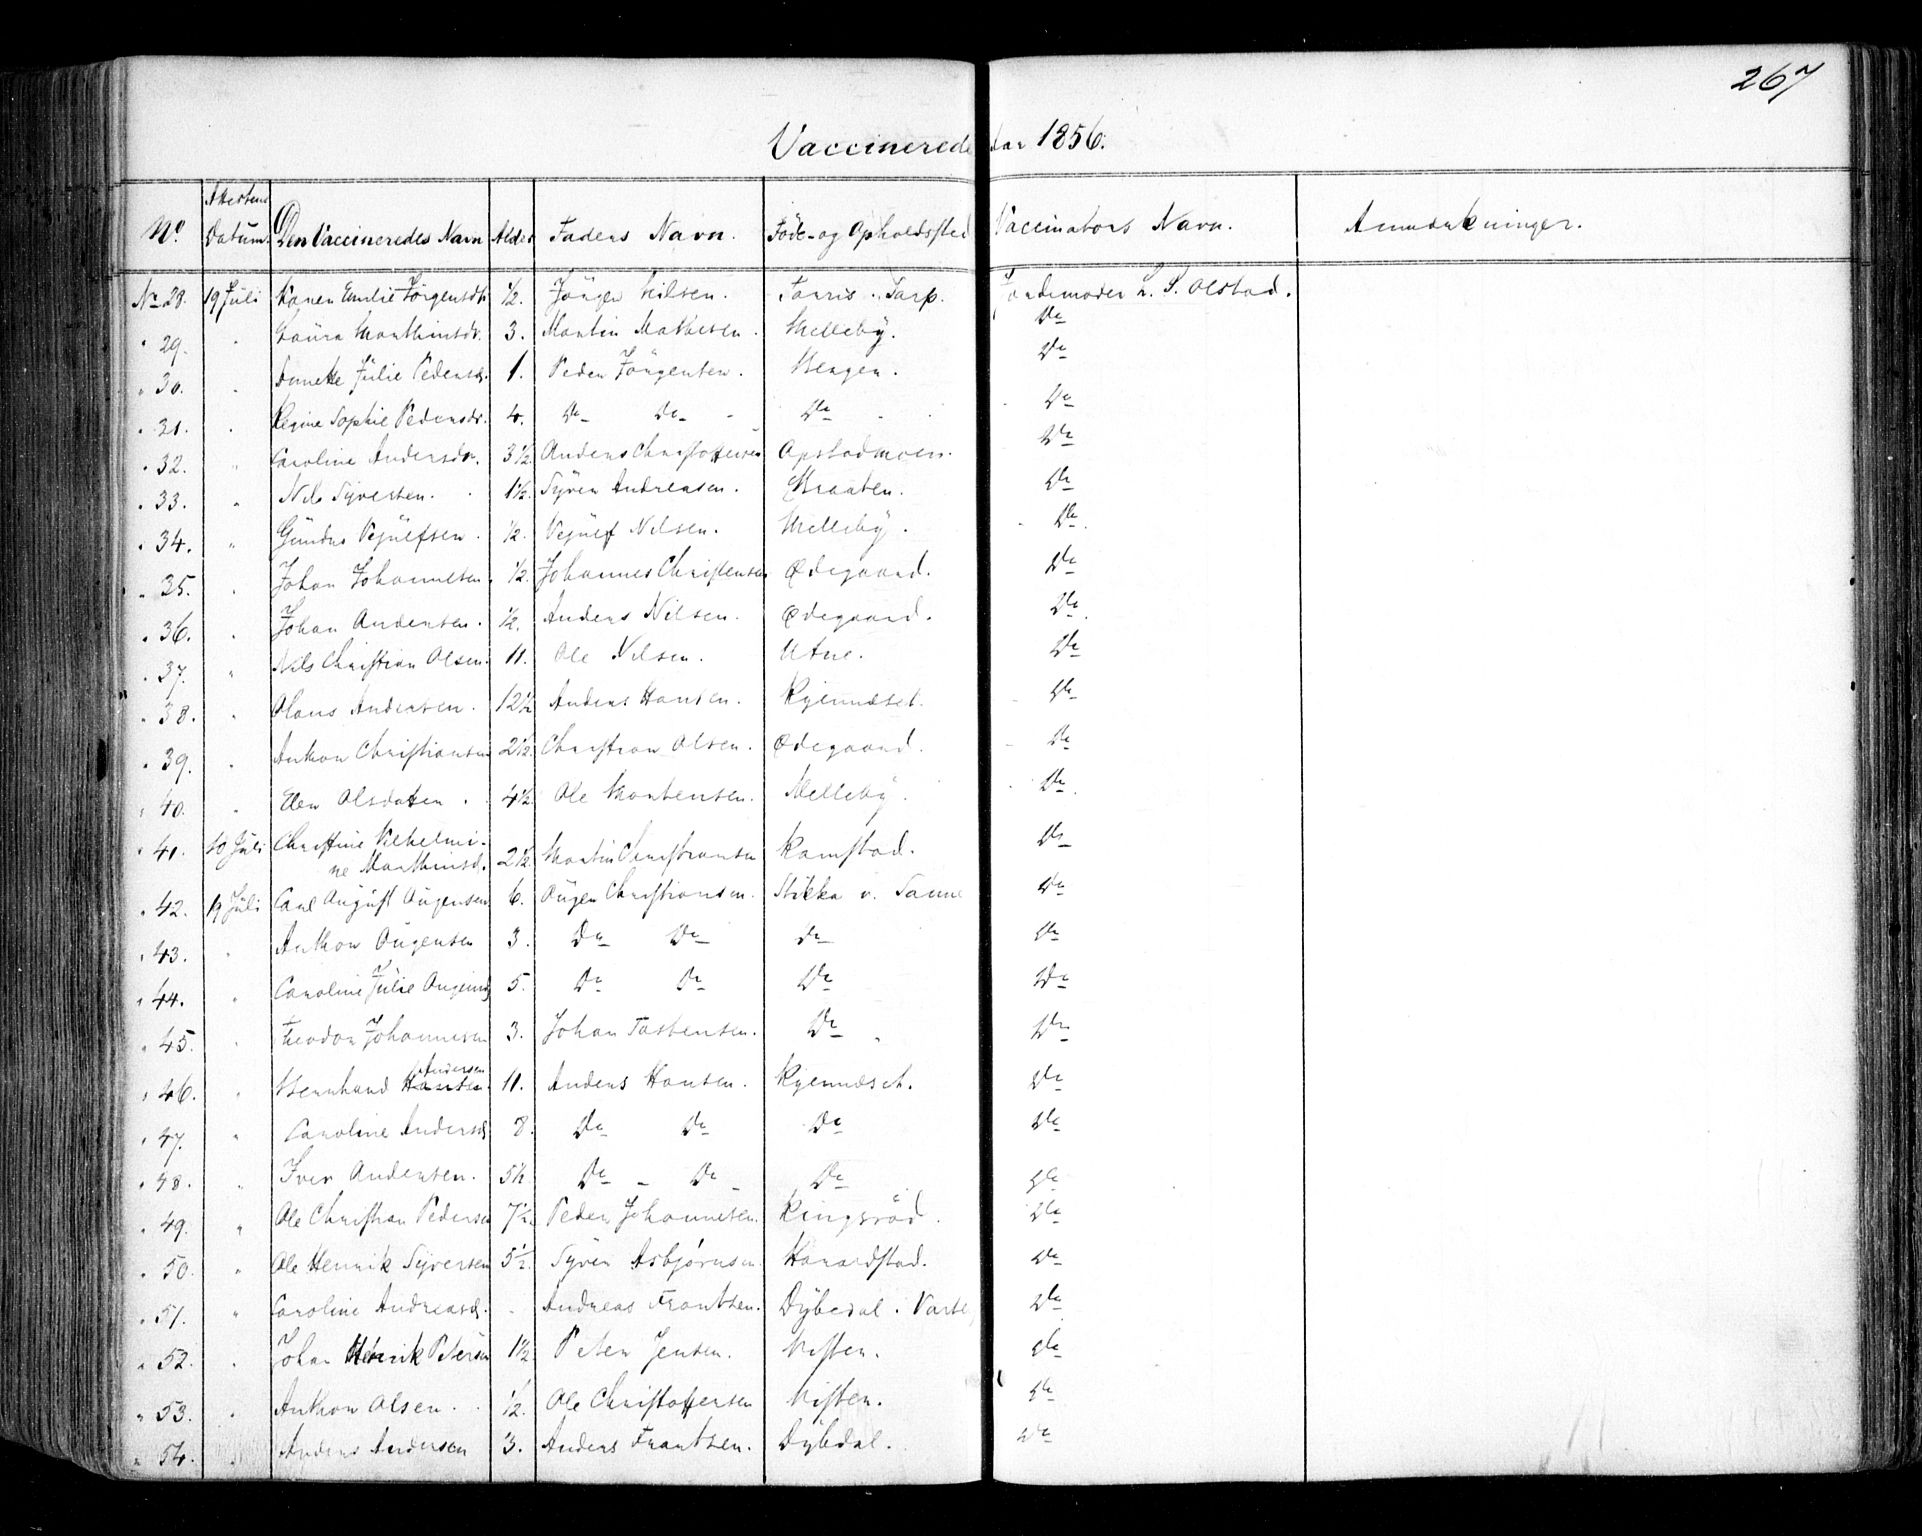 267
Vaccinerede for 1856.
No. Attestens Datum. Den Vaccineredes Navn Alder Faders Navn. Føde- og Opholdssted Vaccinators Navn. Anmærkninger.
No 28. 19 Juli Karen Emilie Jörgensdtr ½. Jörgen Nilsen. Torp. Jordemoder L. S. Olstad.
" 29. " Laura Marthinsdr. 3. Martin Mathesen. Melleby. Do
" 30. " Annette Julie Pedersd. 1. Peder Jörgensen. Do
" 31. " Regine Sophie Pedersdr. 4. Do Do Do Do
" 32. " Caroline Andersdr. 3½ Anders Christoffersen Opstadmoen. Do
" 33. " Nils Syversen. 1½. Syver Andreasen. Braaten. Do
" 34. " Vejulfsen ½. Vejulf Nilsen. Melleby. Do.
" 35. " Johan Johannesen. ½. Johannes Christensen Ødegaard. Do
" 36. " Johan Andersen. ½. Anders Nilsen. Ødegaard. Do.
" 37. " Nils Christian Olsen. 11. Ole Nilsen. Utne. Do
" 38. " Olaus Andersen. 12½ Anders Hansen. Kjennæset. Do
" 39. " Anthon Christiansen 2½. Christian Olsen. Ødegaard. Do
" 40. " Elen Olsdatter. 4½ Ole Mortensen. Melleby. Do.
" 41. 10 Juli Christine Vilhelmi-
ne Marthinsd. 2½ Martin Christiansen Ramstad. Do
" 42. 19 Juli Carl August Augensen 6. Augen Christiansen. Stikka v. Do
" 43. " Anthon Augensen 3. Do Do Do Do
" 44. " Caroline Julie Augensd 5. Do Do Do Do
" 45. " Theodor Johannesen 3. Johan Torstensen. Do Do
" 46. " Bernhard Hansen Andersen 11. Anders Hansen. Kjennæset. Do
" 47. " Caroline Andersd 8. Do Do Do Do
" 48. " Iver Andersen. 5½. Do Do Do Do
" 49. " Ole Christian Pedersen 7½. Peder Johannesen. Ringsröd. Do
" 50. " Ole Henrik Syversen 5½. Syver Asbjørnsen Haraldstad. Do
" 51. " Caroline Andreasd. - Andreas Frantsen. Dybedal. Do
" 52. " Johan Henrik Petersen 1½ Peter Jensen. Visten. Do
" 53. " Anthon Olsen. ½. Ole Christoffersen Visten. Do
" 54. " Anders Andersen 3. Anders Frantsen. Dybdal. Do